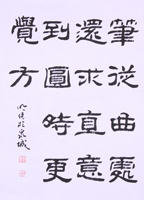 筆從曲處
還求直意
到圓時更
覺方
於泉城